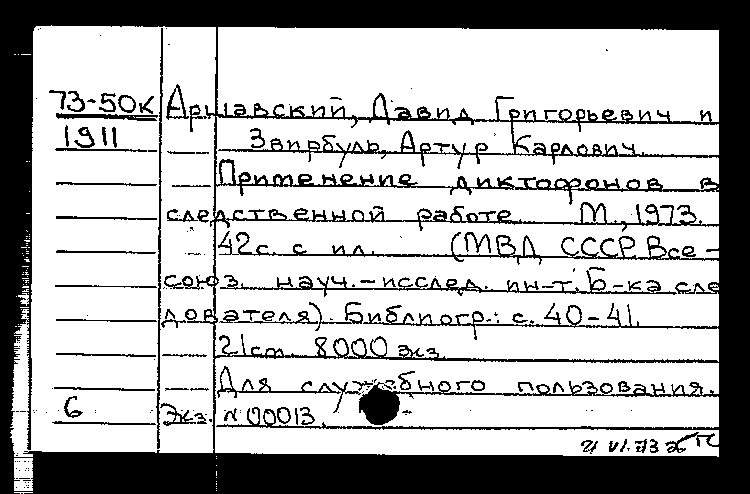 73-50к Аршавский, Давид Григорьевич и
1911 Звирбуль, Артур Карлович.
Применение диктофонов в
следственной работе. М., 1973.
42с. с ил. (МВД СССР. Все-
союз. науч.-исслед. ин-т. Б-ка сле
дователя). Библиогр.: с. 40-41.
21см. 8000 экз.
Для служебного пользования.
6 Экз. N 00013.
21 VI.73